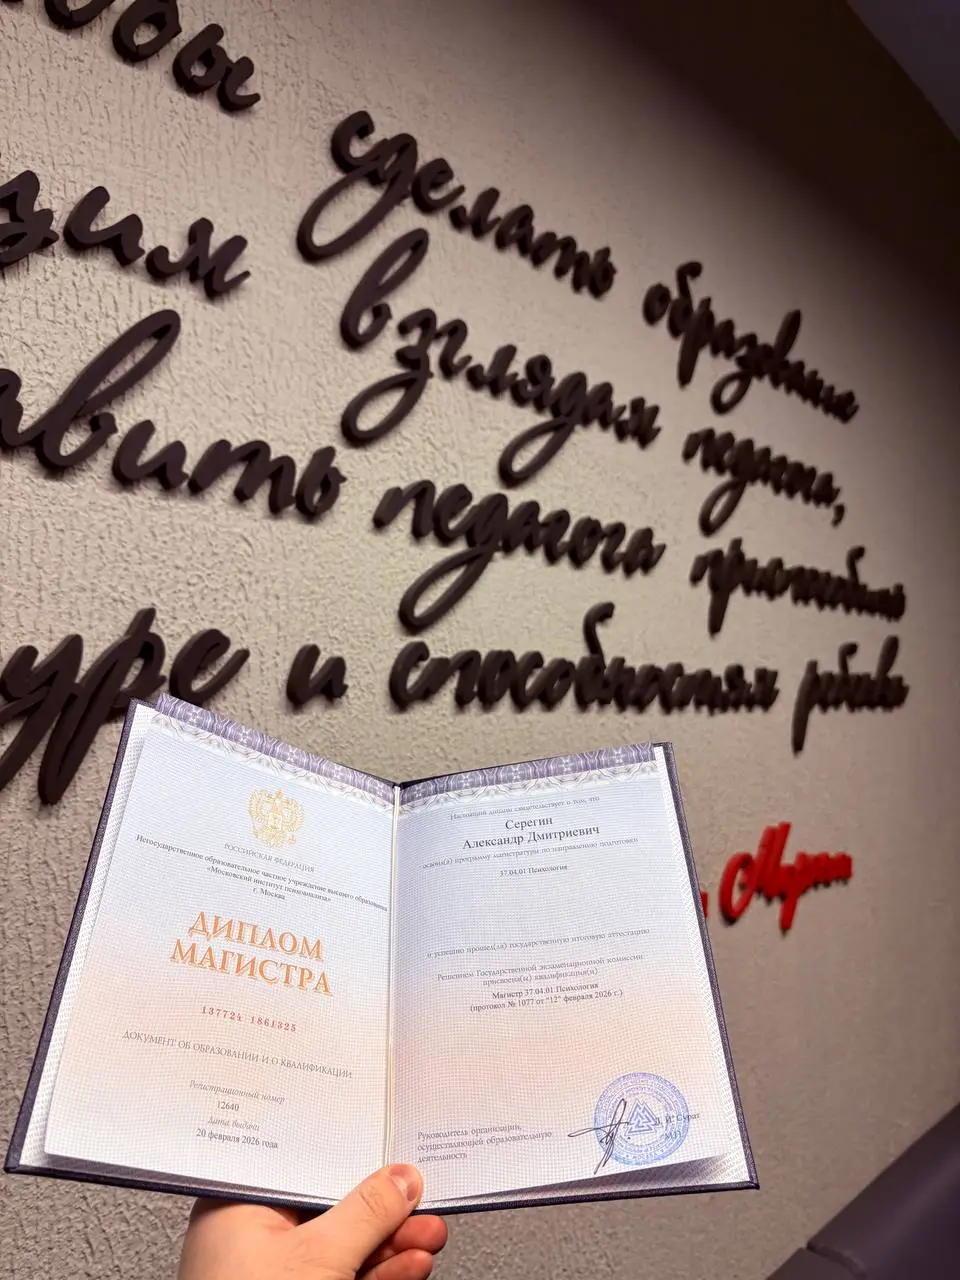 сделать образование
взглядам педагога,
педагога приспособить
и способностям ребенка
РОССИЙСКАЯ ФЕДЕРАЦИЯ
Негосударственное образовательное частное учреждение высшего образования
«Московский институт психоанализа»
г. Москва
ДИПЛОМ
МАГИСТРА
137724 1861325
ДОКУМЕНТ ОБ ОБРАЗОВАНИИ И О КВАЛИФИКАЦИИ
Регистрационный номер
12640
Дата выдачи
20 февраля 2026 года
Настоящий диплом свидетельствует о том, что
Серегин
Александр Дмитриевич
освоил(а) программу магистратуры по направлению подготовки
37.04.01 Психология
и успешно прошел(ла) государственную итоговую аттестацию
Решением Государственной экзаменационной комиссии
присвоена(ы) квалификация(и)
Магистр 37.04.01 Психология
(протокол № 1077 от "12" февраля 2026 г.)
Руководитель организации,
осуществляющей образовательную
деятельность
Сурат
М.П.